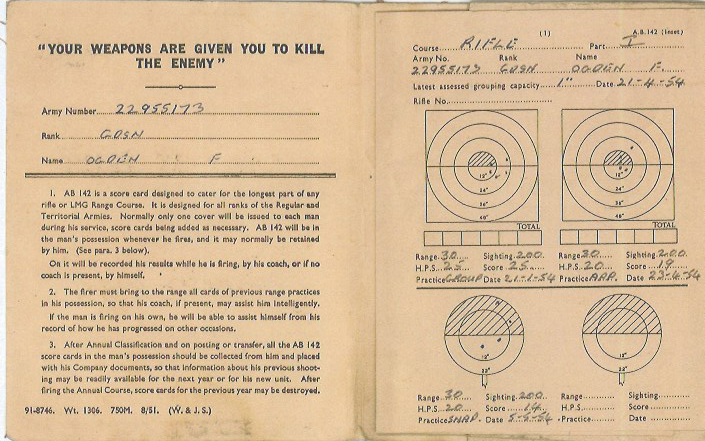 "YOUR WEAPONS ARE GIVEN YOU TO KILL
THE ENEMY"
Army Number 22955173
Rank GDSN
Name OGDEN F
1. AB 142 is a score card designed to cater for the longest part of any
rifle or LMG Range Course. It is designed for all ranks of the Regular and
Territorial Armies. Normally only one cover will be issued to each man
during his service, score cards being added as necessary. AB 142 will be in
the man's possession whenever he fires, and it may normally be retained
by him. (See para. 3 below).
On it will be recorded his results while he is firing, by his coach, or if no
coach is present, by himself.
2. The firer must bring to the range all cards of previous range practices
in his possession, so that his coach, if present, may assist him intelligently.
If the man is firing on his own, he will be able to assist himself from his
record of how he has progressed on other occasions.
3. After Annual Classification and on posting or transfer, all the AB 142
score cards in the man's possession should be collected from him and placed
with his Company documents, so that information about his previous shoot-
ing may be readily available for the next year or for his new unit. After
firing the Annual Course, score cards for the previous year may be destroyed.
91-8746. Wt. 1306. 750M. 8/51. (W. & J.S.)
(1) A.B. 142 (Inset)
Course RIFLE Part I
Army No. Rank Name
22955173 GDSN OGDEN F.
Latest assessed grouping capacity 1" Date 21-4-54
Rifle No.
12" 12"
24" 24"
36" 36"
48" 48"
TOTAL TOTAL
Range 30 Sighting 200 Range 30 Sighting 200
H.P.S. 25 Score 25 H.P.S. 20 Score 19
Practice GROUP Date 21-1-54 Practice APP. Date 23-4-54
12" 12"
22" 22"
Range 30 Sighting 200 Range Sighting
H.P.S. 20 Score 14 H.P.S. Score
Practice SNAP. Date 5-5-54 Practice Date